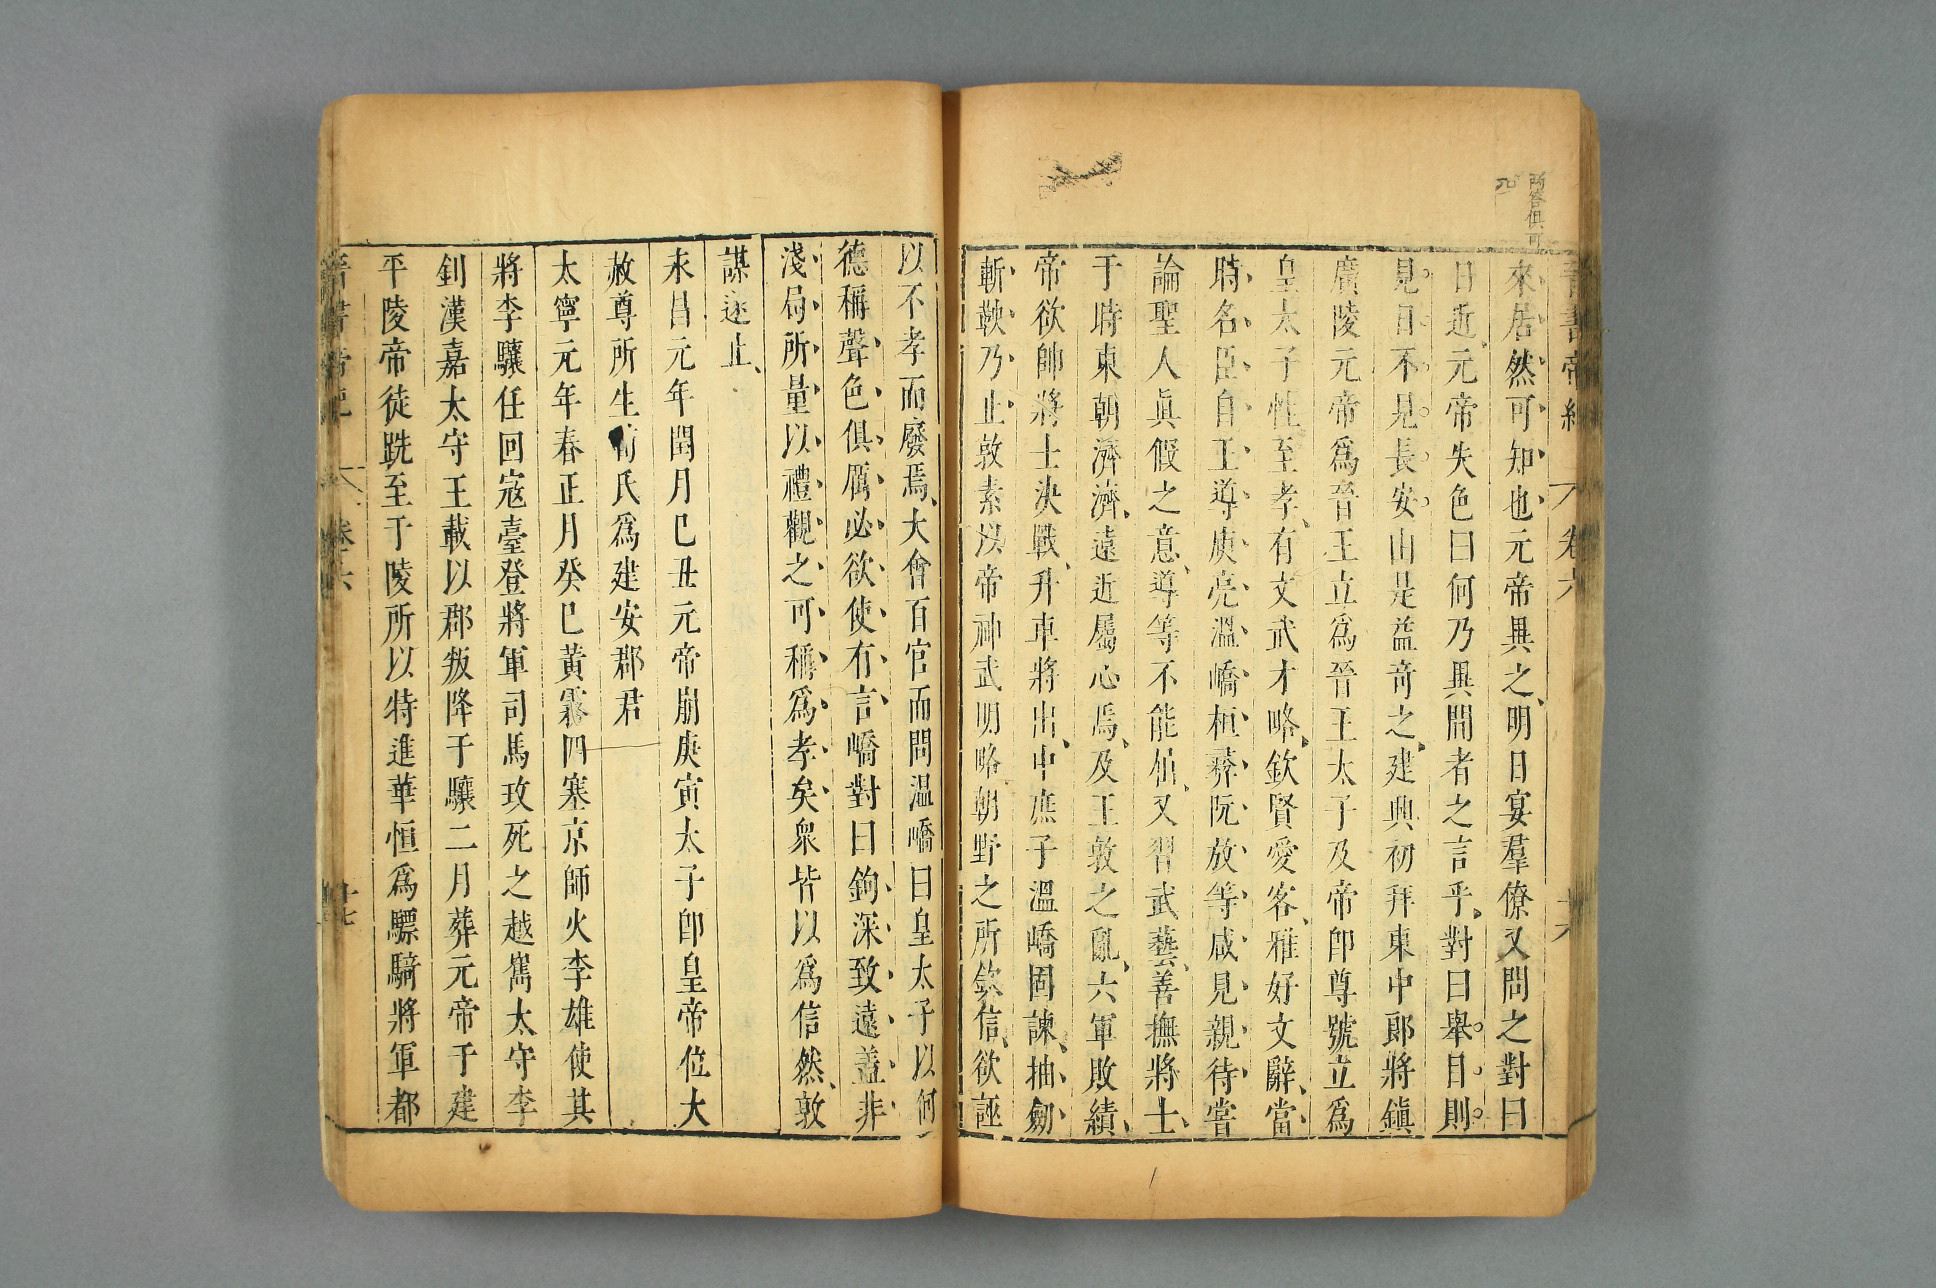 所答俱可
晉書帝紀 卷六 十六
來居然可知也元帝異之明日宴羣僚又問之對曰
日近元帝失色曰何乃異間者之言乎對曰舉目則
見日不見長安由是益竒之建興初拜東中郎將鎮
廣陵元帝爲晉王立爲晉王太子及帝卽尊號立爲
皇太子性至孝有文武才略欽賢愛客雅好文辭當
時名臣自王導庾亮溫嶠桓彝阮放等咸見親待嘗
論聖人眞假之意導等不能屈又習武藝善撫將士
于時東朝濟濟遠近屬心焉及王敦之亂六軍敗績
帝欲帥將士決戰升車將出中庶子溫嶠固諫抽劒
斬鞅乃止敦素以帝神武明略朝野之所欽信欲誣
以不孝而廢焉大會百官而問溫嶠曰皇太子以何
德稱聲色俱厲必欲使有言嶠對曰鉤深致遠蓋非
淺局所量以禮觀之可稱爲孝矣衆皆以爲信然敦
謀遂止
永昌元年閏月己丑元帝崩庚寅太子卽皇帝位大
赦尊所生荀氏爲建安郡君
太寧元年春正月癸巳黃霧四塞京師火李雄使其
將李驤任回寇臺登將軍司馬玫死之越巂太守李
釗漢嘉太守王載以郡叛降于驤二月葬元帝于建
平陵帝徒跣至于陵所以特進華恒爲驃騎將軍都
晉書帝紀 卷六 十七